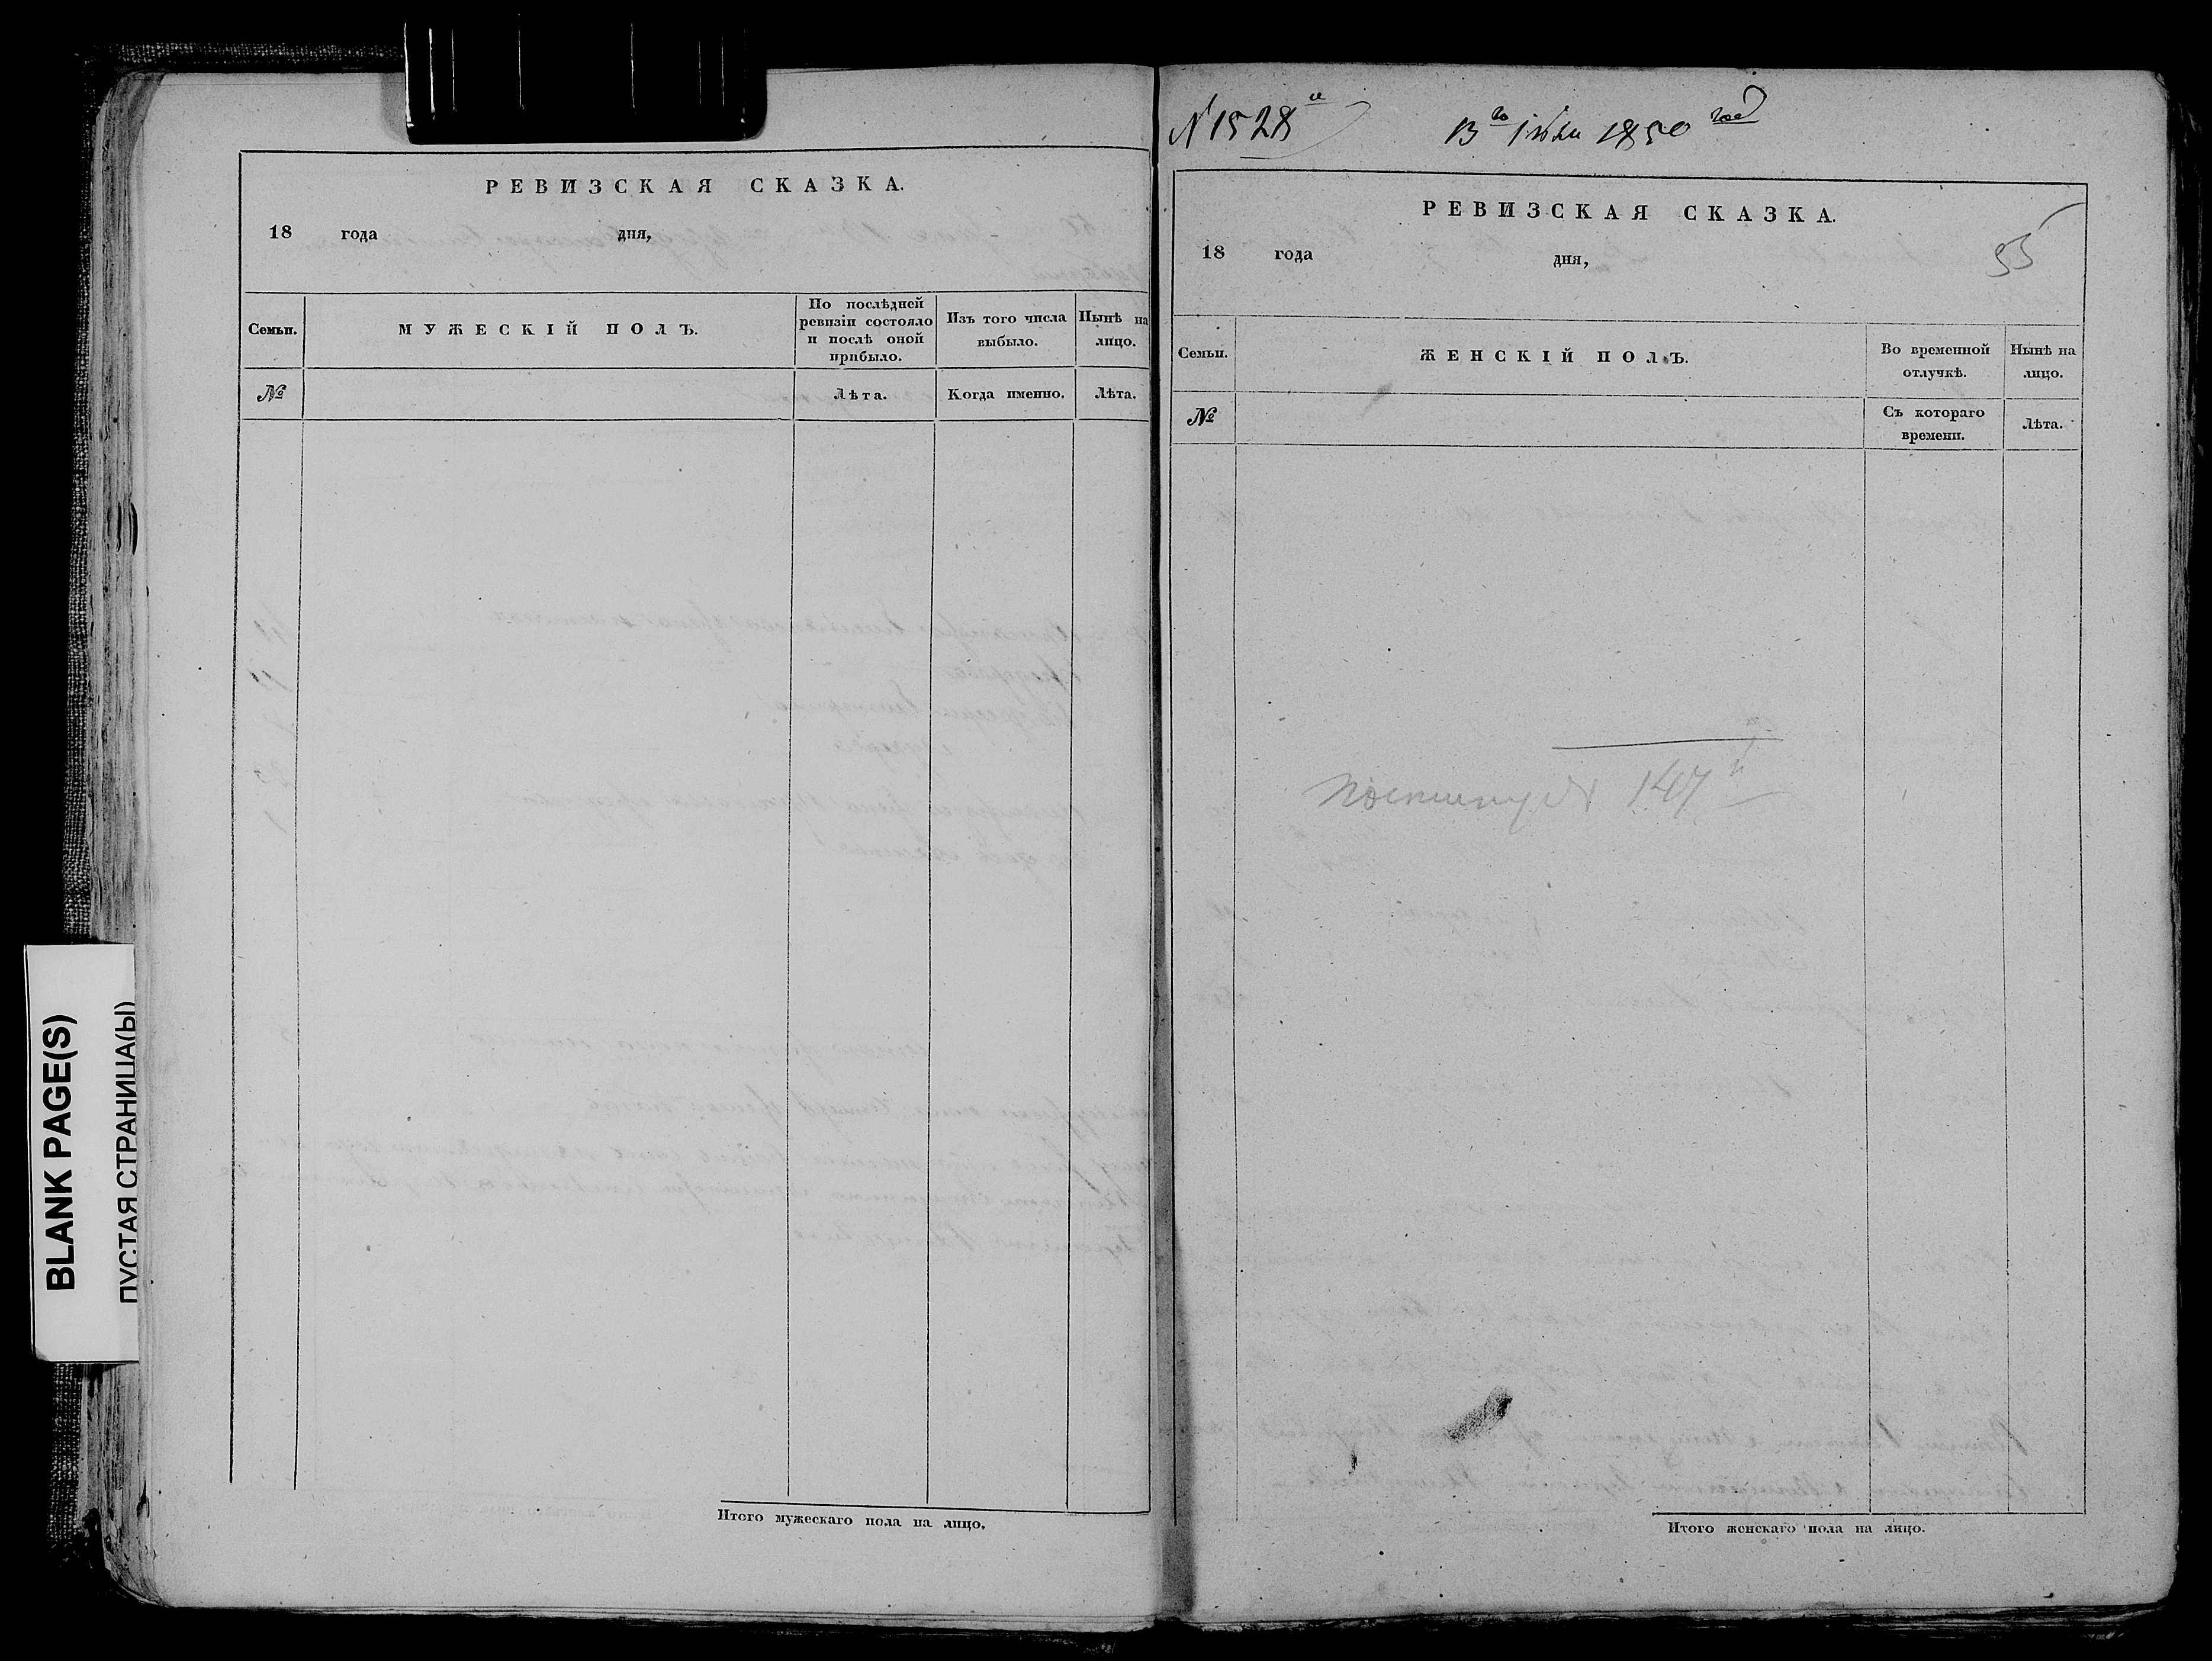 РЕВИЗСКАЯ СКАЗКА.
18 года дня,
Семьи.
МУЖЕСКІЙ ПОЛЪ.
По послѣдней ревизіи состояло и послѣ оной прибыло.
Изъ того числа выбыло.
Нынѣ на лицо.
№
Лѣта.
Когда именно.
Лѣта.
Итого мужескаго пола на лицо.
BLANK PAGE(S)
ПУСТАЯ СТРАНИЦА(Ы)
N 1528й
13го 1850 год
РЕВИЗСКАЯ СКАЗКА.
55
18 года дня,
Семьи.
ЖЕНСКІЙ ПОЛЪ.
Во временной отлучкѣ.
Нынѣ на лицо.
№
Съ котораго времени.
Лѣта.
147
Итого женскаго пола на лицо.